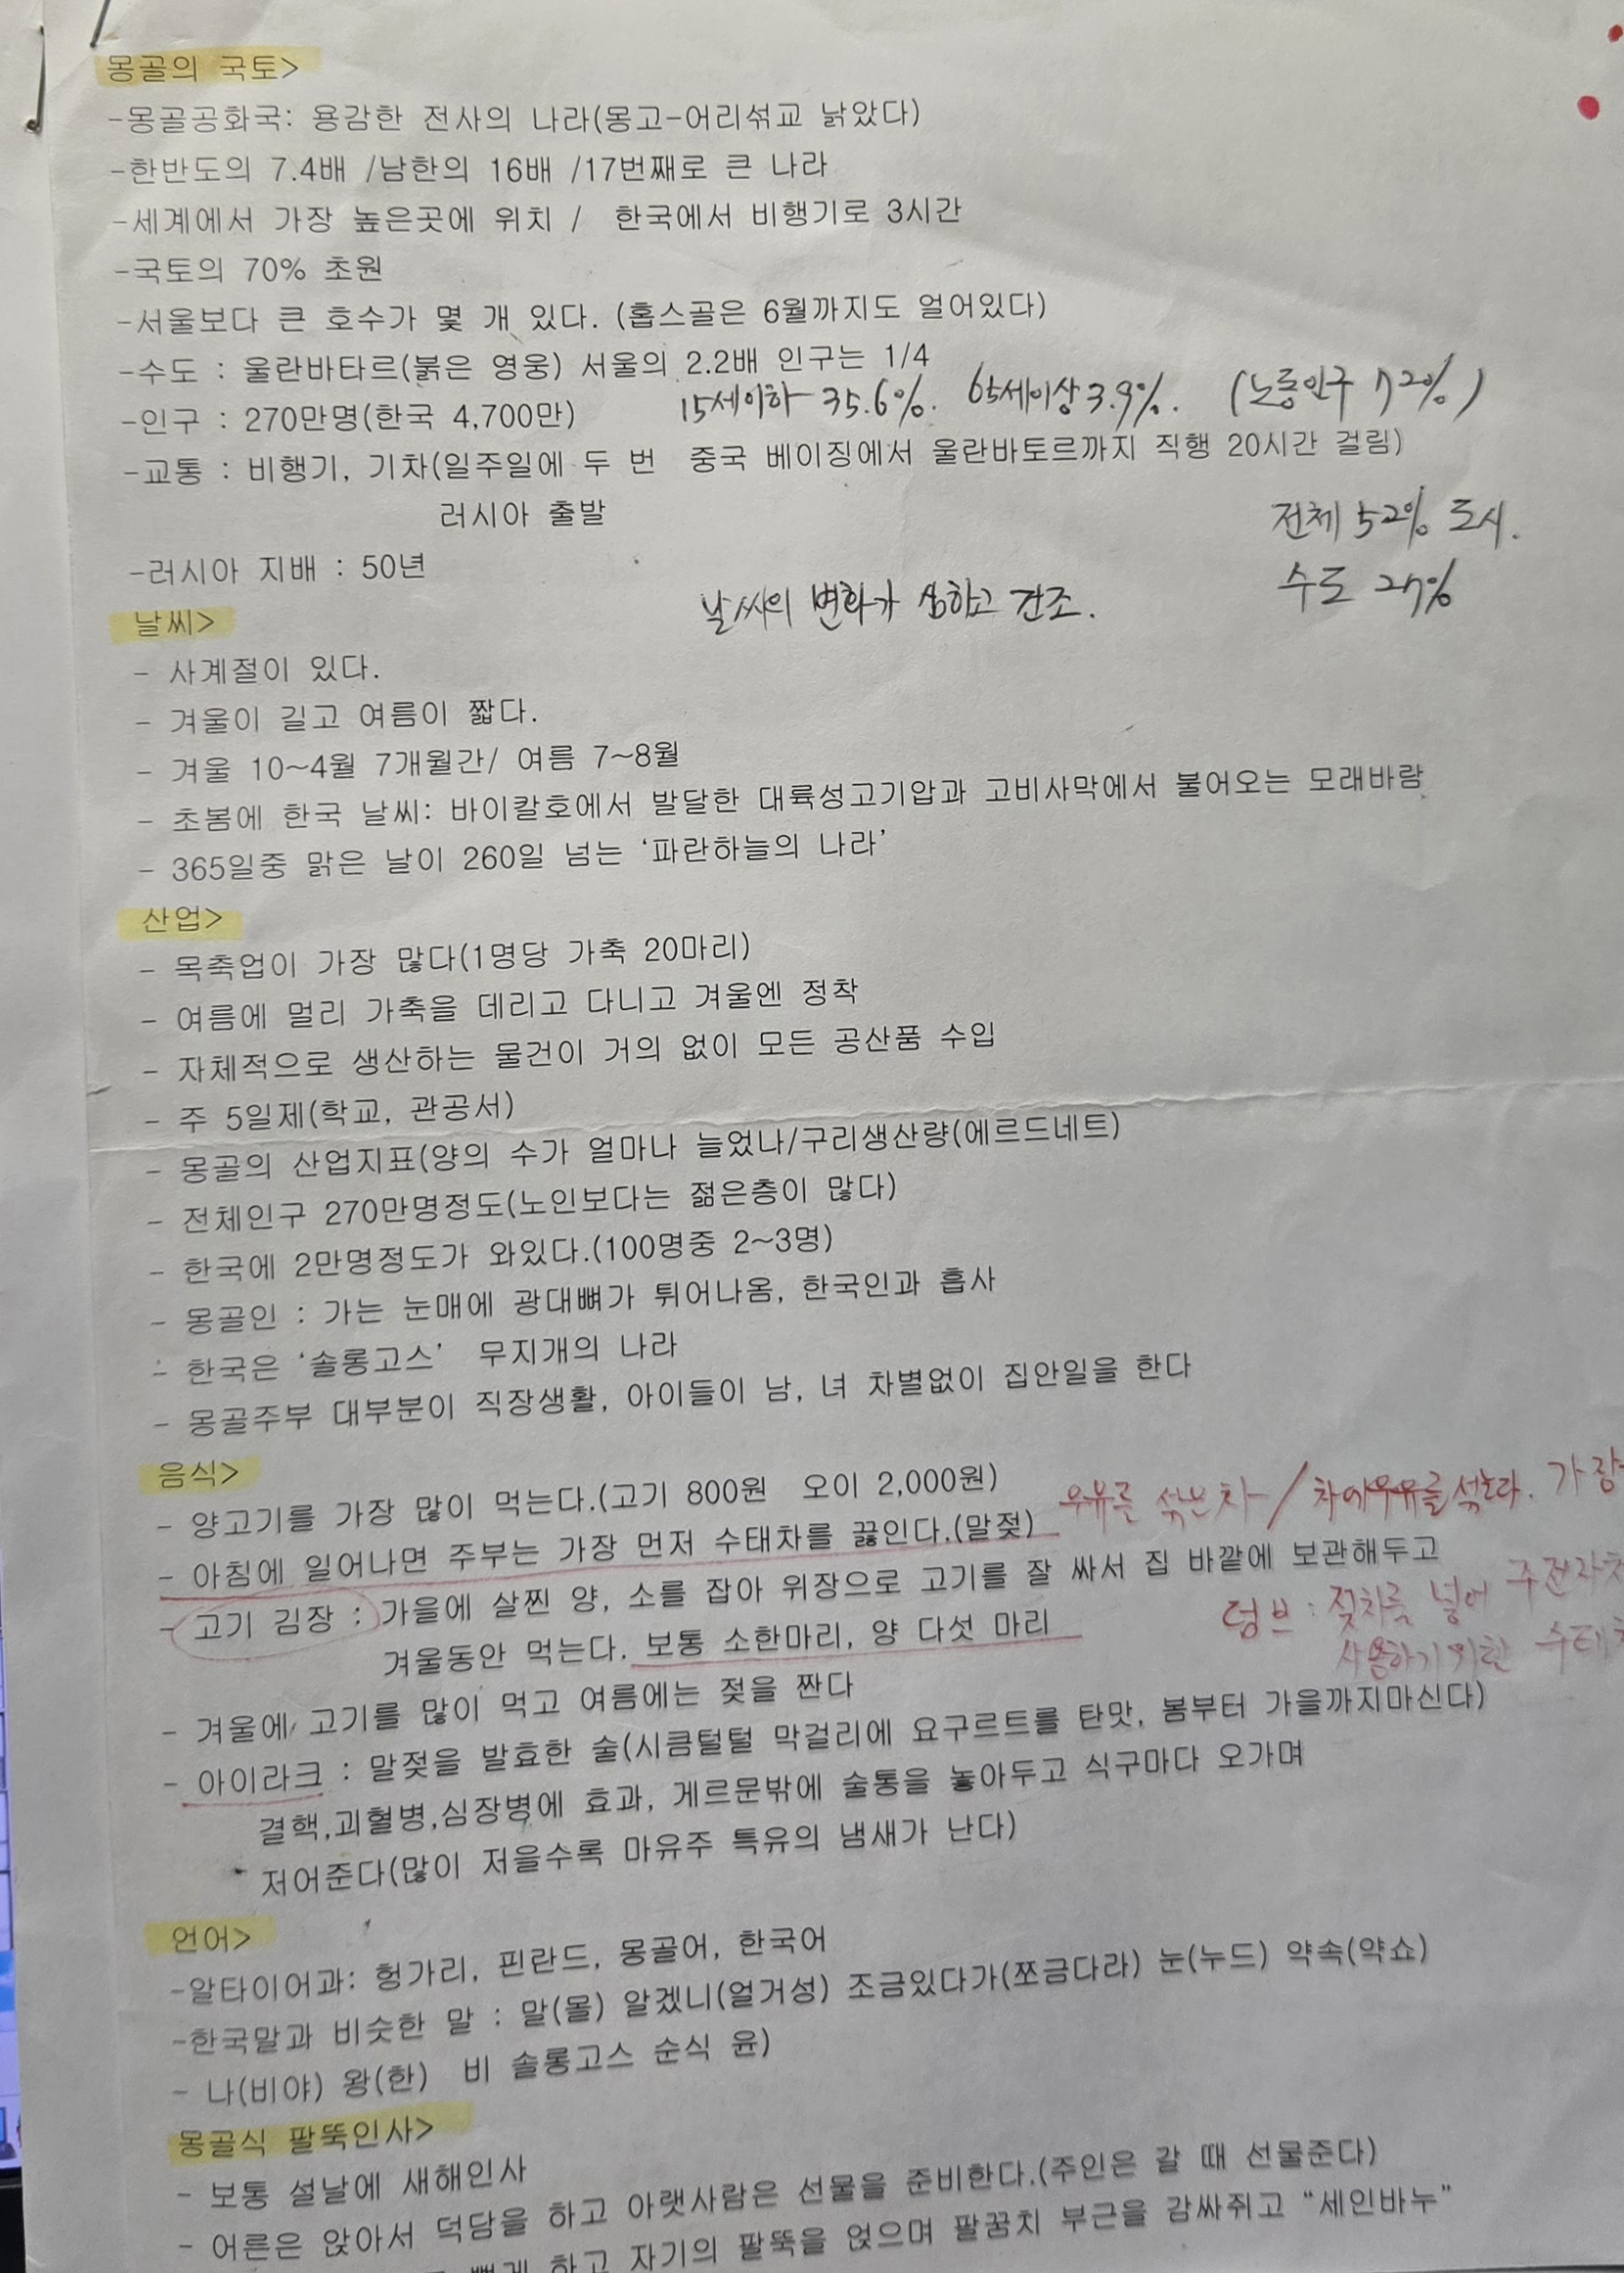 몽골의 국토>
-몽골공화국: 용감한 전사의 나라(몽고-어리섞교 낡았다)
-한반도의 7.4배 /남한의 16배 /17번째로 큰 나라
-세계에서 가장 높은곳에 위치 / 한국에서 비행기로 3시간
-국토의 70% 초원
-서울보다 큰 호수가 몇 개 있다. (홉스골은 6월까지도 얼어있다)
-수도 : 울란바타르(붉은 영웅) 서울의 2.2배 인구는 1/4
-인구 : 270만명(한국 4,700만)
15세이하 35.6%. 65세이상 3.9%. (노동인구 72%)
-교통 : 비행기, 기차(일주일에 두 번 중국 베이징에서 울란바토르까지 직행 20시간 걸림)
러시아 출발
전체 52% 도시.
-러시아 지배 : 50년
수도 27%
날씨>
날씨의 변화가 심하고 건조.
- 사계절이 있다.
- 겨울이 길고 여름이 짧다.
- 겨울 10~4월 7개월간/ 여름 7~8월
- 초봄에 한국 날씨: 바이칼호에서 발달한 대륙성고기압과 고비사막에서 불어오는 모래바람
- 365일중 맑은 날이 260일 넘는 ‘파란하늘의 나라’
산업>
- 목축업이 가장 많다(1명당 가축 20마리)
- 여름에 멀리 가축을 데리고 다니고 겨울엔 정착
- 자체적으로 생산하는 물건이 거의 없이 모든 공산품 수입
- 주 5일제(학교, 관공서)
- 몽골의 산업지표(양의 수가 얼마나 늘었나/구리생산량(에르드네트)
- 전체인구 270만명정도(노인보다는 젊은층이 많다)
- 한국에 2만명정도가 와있다.(100명중 2~3명)
- 몽골인 : 가는 눈매에 광대뼈가 튀어나옴, 한국인과 흡사
- 한국은 ‘솔롱고스’ 무지개의 나라
- 몽골주부 대부분이 직장생활, 아이들이 남, 녀 차별없이 집안일을 한다
음식>
- 양고기를 가장 많이 먹는다.(고기 800원 오이 2,000원)
우유를 섞은차 / 차에우유를 섞는다.
- 아침에 일어나면 주부는 가장 먼저 수태차를 끓인다.(말젖)
- 고기 김장 : 가을에 살찐 양, 소를 잡아 위장으로 고기를 잘 싸서 집 바깥에 보관해두고
덤브 : 젖차를 넣어
겨울동안 먹는다. 보통 소한마리, 양 다섯 마리
사용하기위한
- 겨울에 고기를 많이 먹고 여름에는 젖을 짠다
- 아이라크 : 말젖을 발효한 술(시큼털털 막걸리에 요구르트를 탄맛, 봄부터 가을까지마신다)
결핵,괴혈병,심장병에 효과, 게르문밖에 술통을 놓아두고 식구마다 오가며
저어준다(많이 저을수록 마유주 특유의 냄새가 난다)
언어>
-알타이어과: 헝가리, 핀란드, 몽골어, 한국어
-한국말과 비슷한 말 : 말(몰) 알겠니(얼거성) 조금있다가(쪼금다라) 눈(누드) 약속(약쇼)
- 나(비야) 왕(한) 비 솔롱고스 순식 윤)
몽골식 팔뚝인사>
- 보통 설날에 새해인사
- 어른은 앉아서 덕담을 하고 아랫사람은 선물을 준비한다.(주인은 갈 때 선물준다)
하고 자기의 팔뚝을 얹으며 팔꿈치 부근을 감싸쥐고 “세인바누”